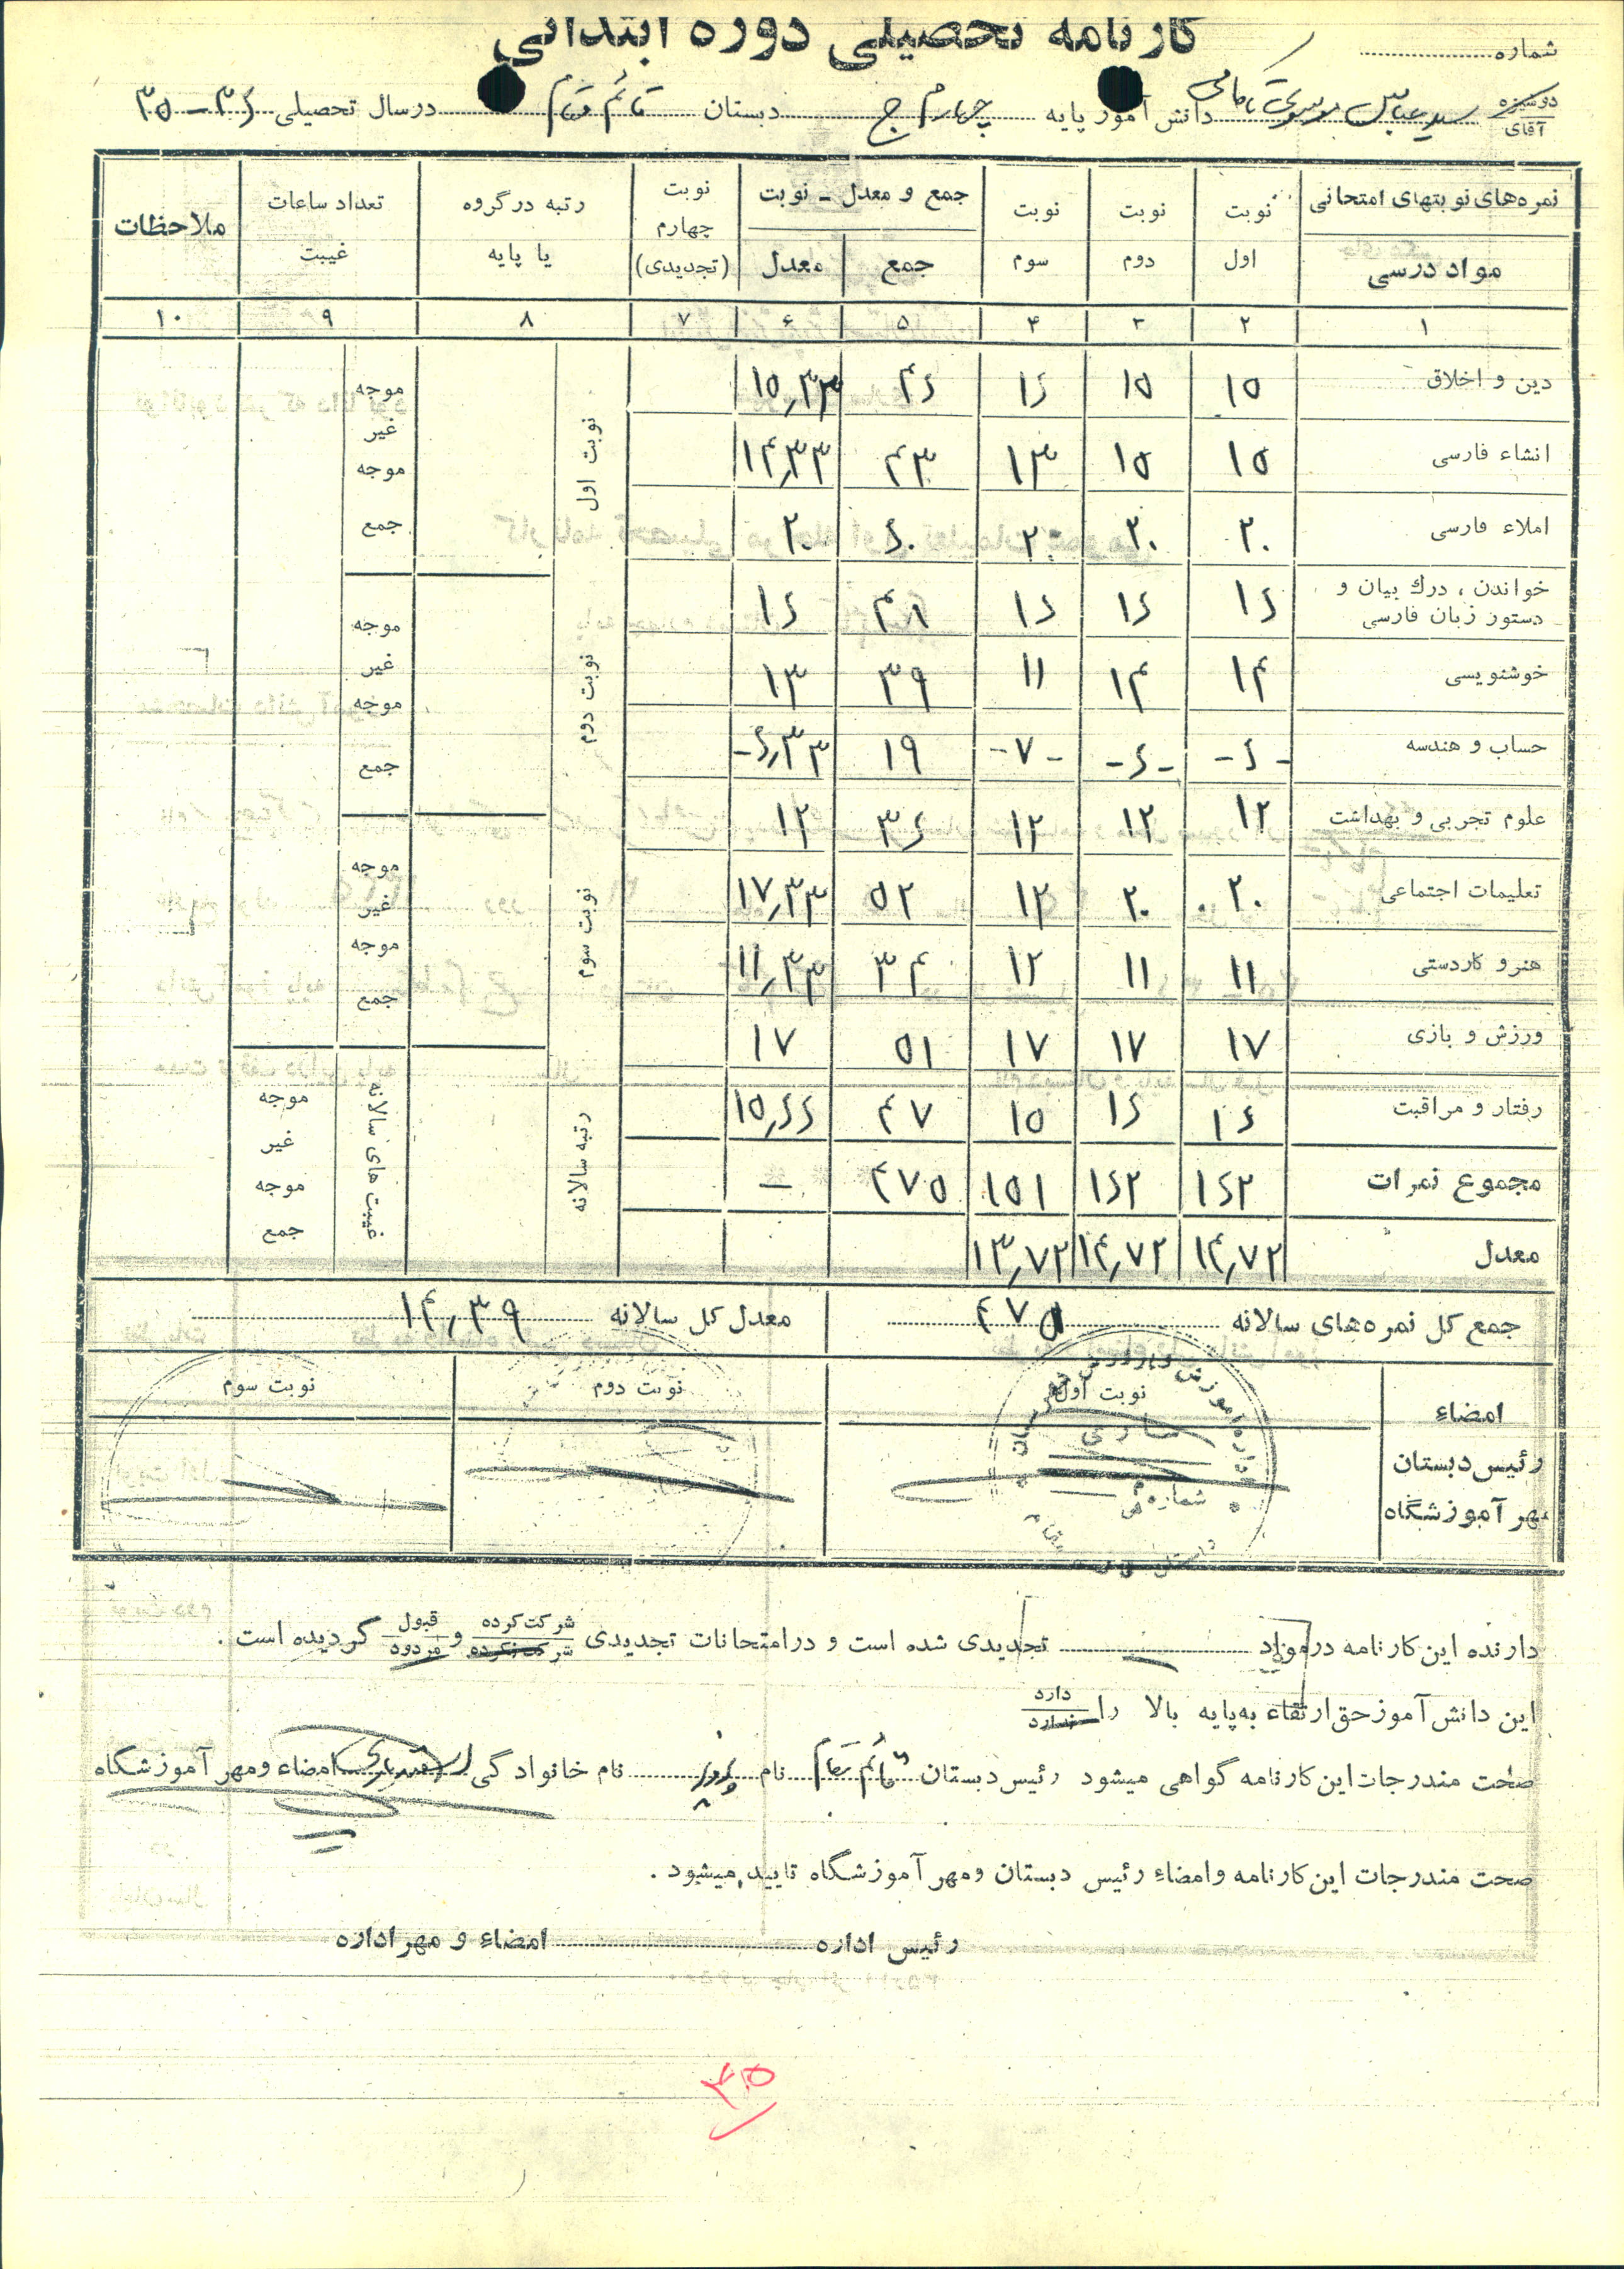 کارنامه تحصیلی دوره ابتدائی
شماره
دوشیزه
آقای سید عباس موسوی دانش آموز پایه چهارم ج دبستان قائم مقام در سال تحصیلی ۳۶ – ۳۵
نمره‌های نوبتهای امتحانی نوبت نوبت نوبت جمع و معدل – نوبت نوبت رتبه در گروه تعداد ساعات ملاحظات
مواد درسی اول دوم سوم جمع معدل چهارم (تجدیدی) یا پایه غیبت
۱ ۲ ۳ ۴ ۵ ۶ ۷ ۸ ۹ ۱۰
دین و اخلاق ۱۵ ۱۵ ۱۶ ۴۶ ۱۵٫۳۳
انشاء فارسی ۱۵ ۱۵ ۱۳ ۴۳ ۱۴٫۳۳
املاء فارسی ۲۰ ۲۰ ۲۰ ۶۰ ۲۰
خواندن ، درك بیان و
دستور زبان فارسی ۱۶ ۱۶ ۱۶ ۴۸ ۱۶
خوشنویسی ۱۴ ۱۴ ۱۱ ۳۹ ۱۳
حساب و هندسه -۶- -۶- -۷- ۱۹ -۶٫۳۳
علوم تجربی و بهداشت ۱۲ ۱۲ ۱۲ ۳۶ ۱۲
تعلیمات اجتماعی ۲۰ ۲۰ ۱۲ ۵۲ ۱۷٫۳۳
هنر و کاردستی ۱۱ ۱۱ ۱۲ ۳۴ ۱۱٫۳۳
ورزش و بازی ۱۷ ۱۷ ۱۷ ۵۱ ۱۷
رفتار و مراقبت ۱۶ ۱۶ ۱۵ ۴۷ ۱۵٫۶۶
مجموع نمرات ۱۶۲ ۱۶۲ ۱۵۱ ۴۷۵ —
معدل ۱۴٫۷۲ ۱۴٫۷۲ ۱۳٫۷۲
نوبت اول
موجه
غیر
موجه
جمع
نوبت دوم
موجه
غیر
موجه
جمع
نوبت سوم
موجه
غیر
موجه
جمع
رتبه سالانه
غیبت های سالانه
موجه
غیر
موجه
جمع
جمع کل نمره‌های سالانه ۴۷۵ معدل کل سالانه ۱۴٫۳۹
امضاء نوبت اول نوبت دوم نوبت سوم
رئیس دبستان
مهر آموزشگاه
ساری
شماره
دارنده این کارنامه در مواد — تجدیدی شده است و در امتحانات تجدیدی شرکت کرده شرکت نکرده و قبول مردود گردیده است .
این دانش آموز حق ارتقاء به پایه بالا را دارد ندارد
صحت مندرجات این کارنامه گواهی میشود رئیس دبستان قائم مقام نام پرویز نام خانوادگی امضاء و مهر آموزشگاه
صحت مندرجات این کارنامه و امضاء رئیس دبستان و مهر آموزشگاه تایید میشود .
رئیس اداره امضاء و مهر اداره